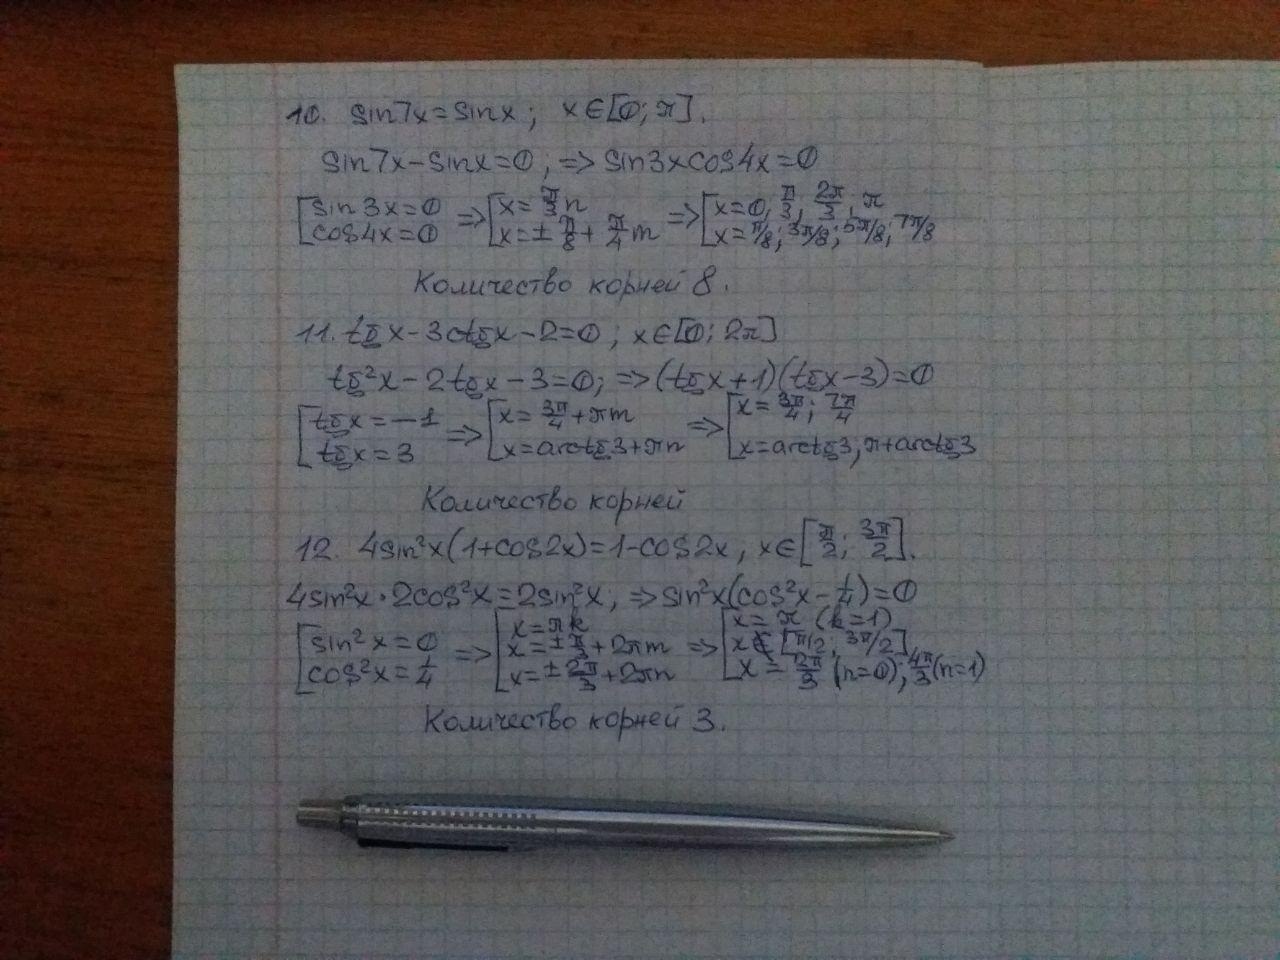 10. sin7x=sinx; x∈[0;π].
sin7x-sinx=0; => sin3xcos4x=0
[sin3x=0 => [x=π/3 n => [x=0; π/3; 2π/3; π
[cos4x=0 [x=±π/8+π/4 m [x=π/8; 3π/8; 5π/8; 7π/8
Количество корней 8.
11. tgx-3ctgx-2=0; x∈[0;2π]
tg²x-2tgx-3=0; =>(tgx+1)(tgx-3)=0
[tgx=-1 => [x=3π/4+πm => [x=3π/4; 7π/4
[tgx=3 [x=arctg3+πn [x=arctg3; π+arctg3
Количество корней
12. 4sin²x(1+cos2x)=1-cos2x, x∈[π/2; 3π/2].
4sin²x·2cos²x=2sin²x, =>sin²x(cos²x-1/4)=0
[sin²x=0 => [x=πk => [x=π (k=1)
[x=±π/3+2πm [x∉[π/2; 3π/2]
[cos²x=1/4 [x=±2π/3+2πn [x=2π/3 (n=0); 4π/3 (n=1)
Количество корней 3.